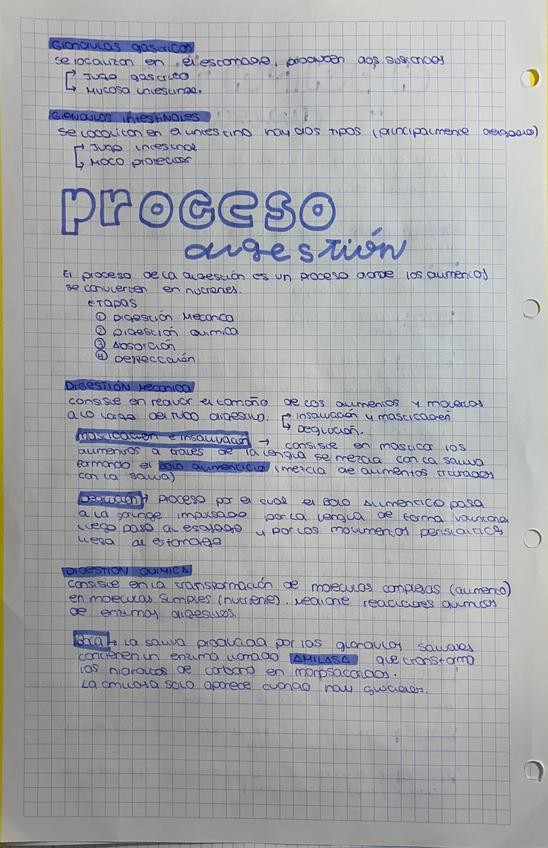 Glandulas gastricas
se localizan en el estomago, producen dos sustancias
Jugo gastrico
Mucosa intestinal.
Glandulas intestinales
se localizan en el intestino hay dos tipos (principalmente delgado)
Jugo intestinal
Moco protector
proceso
digestión
El proceso de la digestión es un proceso donde los alimentos
se convierten en nutrientes.
ETAPAS
① Digestión Mecanica
② Digestión quimica
③ Absorción
④ Defecación
Digestión Mecanica
consiste en reducir el tamaño de los alimentos y moverlos
a lo largo del tubo digestivo. insalivación y masticación
Deglución.
Masticación e insalivación → consiste en masticar los
alimentos a través de la lengua se mezcla con la saliva
formando el bolo alimenticio (mezcla de alimentos triturados
con la saliva)
Deglución → Proceso por el cual el Bolo Alimenticio pasa
a la faringe impulsado por la lengua de forma voluntaria
luego pasa al esofago y por los movimientos peristalticos
llega al estomago
Digestión quimica
consiste en la transformación de moleculas complejas (alimento)
en moleculas simples (nutriente). Mediante reacciones quimicas
de enzimas digestivos.
Boca → La saliva producida por las glandulas salivales
contienen un enzima llamado AMILASA que transforma
los hidratos de carbono en
La amilasa solo aparece cuando hay